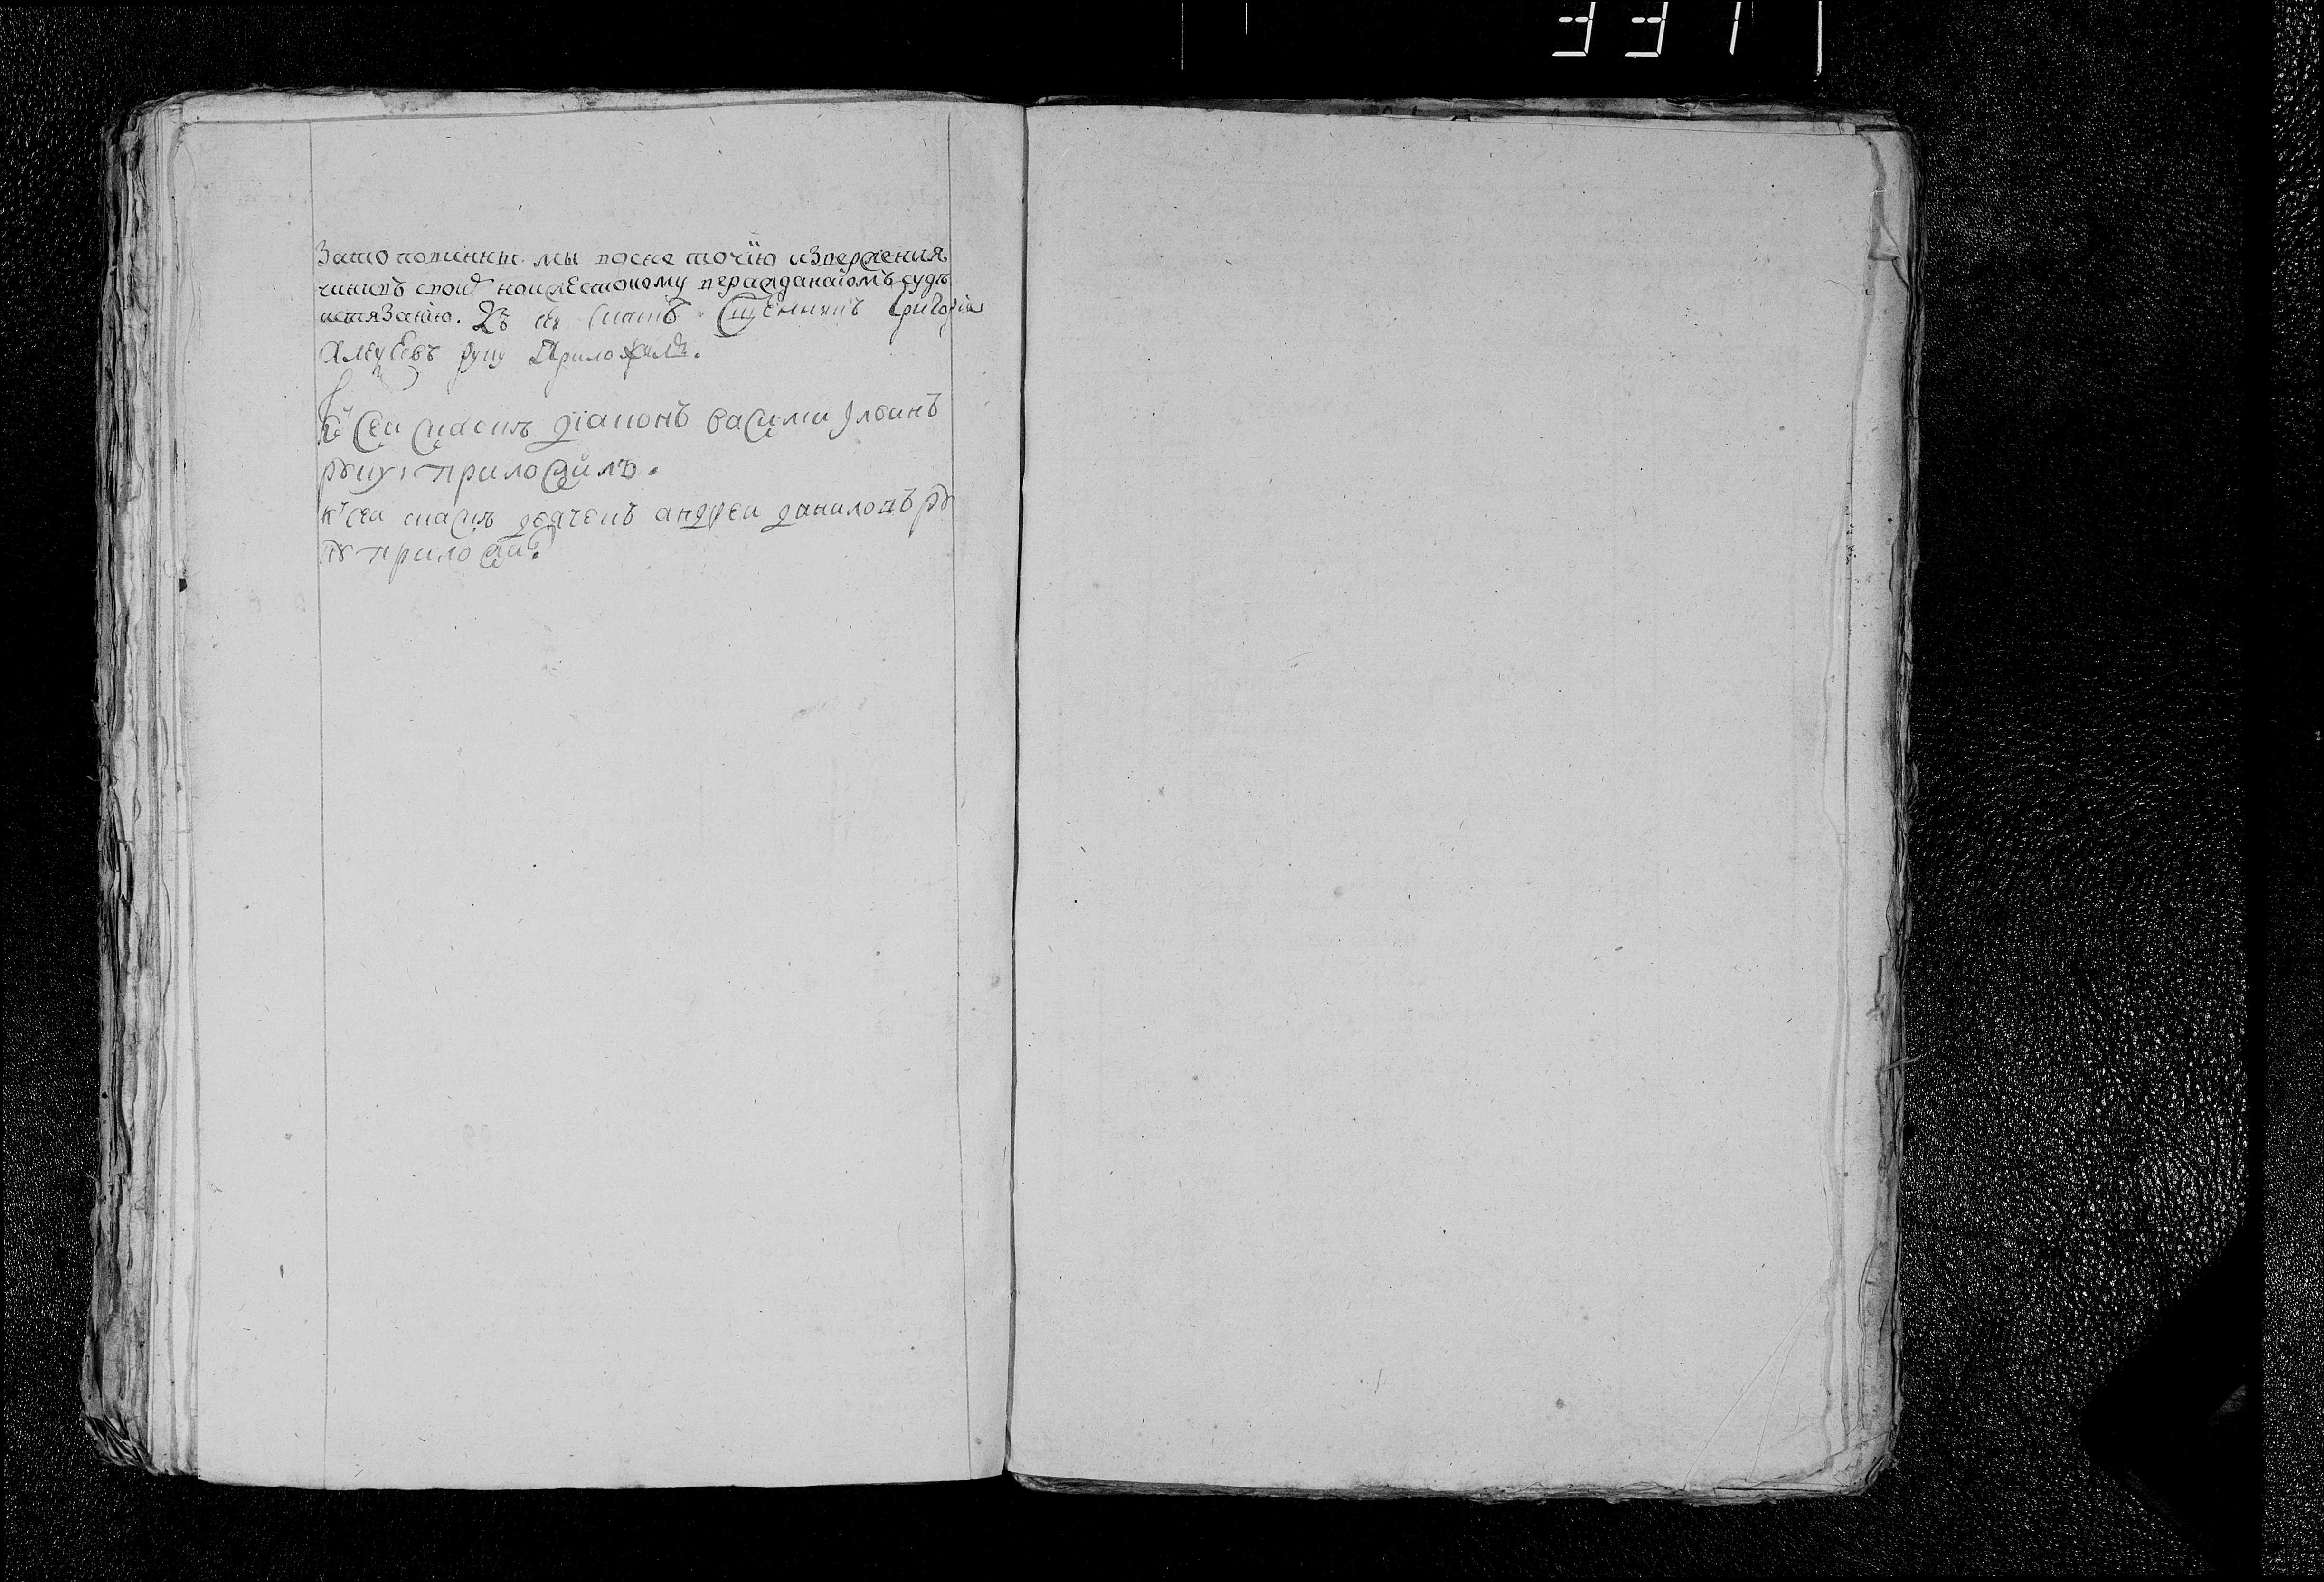 1331
зато повинны мы после точїю извержения
чиновъ своих но и жестокому в гражданскомъ судѣ
истязанїю. Къ сей скаскѣ Сщенникъ Григорїи
Алеѯеевъ руку Приложилъ.
къ сеи скаски дїаконъ васили илвинъ
руку приложилъ.
къ сеи скаски дьячекъ андреи даниловъ ру
ку приложил